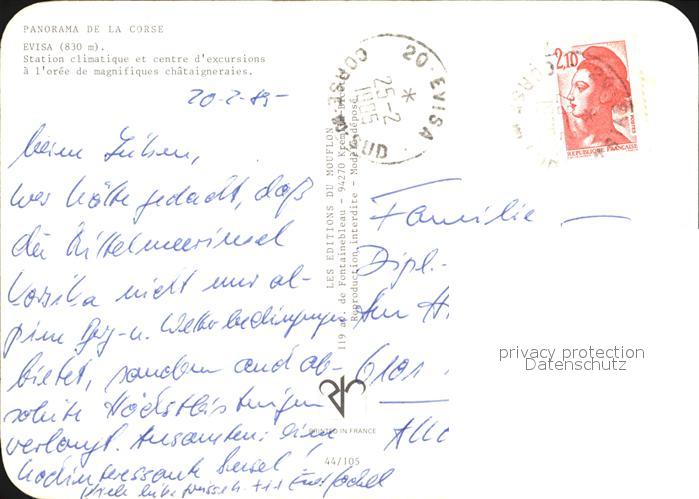 PANORAMA DE LA CORSE
EVISA (830 m).
Station climatique et centre d'excursions
à l'orée de magnifiques châtaigneraies.
20-2-85-
Meine Lieben,
wer hätte gedacht, daß
die Mittelmeerinsel
Korsika nicht nur al-
pine Berg- u. Wetterbedingungen
bietet, sondern auch ab-
solute Höchstleistungen
verlangt. Ansonsten: eine
hochinteressante Insel,
Viele liebe
LES EDITIONS DU MOUFLON
119 av. de Fontainebleau - 94270 Kremlin-
Reproduction interdite - Modèle déposé
20 EVISA
25-2
1985
CORSE DU SUD
2,10
REPUBLIQUE FRANÇAISE
POSTES
Familie
Dipl.-
Am H
6101
privacy protection
Datenschutz
PRINTED IN FRANCE
44/105